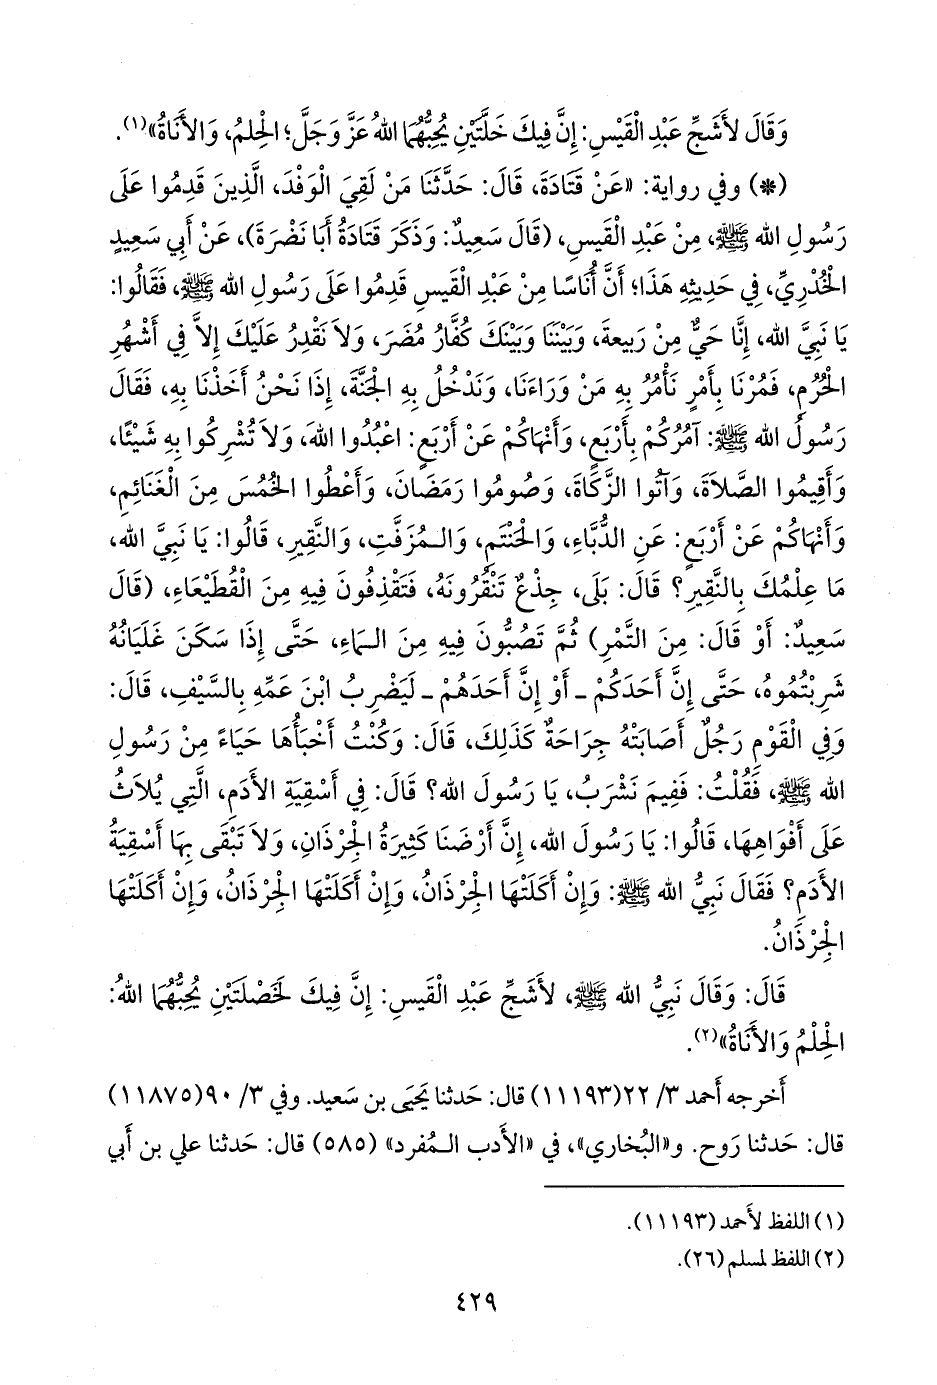 وَقَالَ لأَشَجِّ عَبْدِ الْقَيْسِ: إِنَّ فِيكَ خَلَّتَيْنِ يُحِبُّهُمَا اللهُ عَزَّ وَجَلَّ؛ الْحِلمُ، وَالأَنَاةُ»(١).
(*) وفي رواية: «عَنْ قَتَادَةَ، قَالَ: حَدَّثَنَا مَنْ لَقِيَ الْوَفْدَ، الَّذِينَ قَدِمُوا عَلَى
رَسُولِ الله ﷺ، مِنْ عَبْدِ الْقَيسِ، (قَالَ سَعِيدٌ: وَذَكَرَ قَتَادَةُ أَبَا نَضْرَةَ)، عَنْ أَبِي سَعِيدٍ
الْخُدْرِيِّ، فِي حَدِيثِهِ هَذَا؛ أَنَّ أُنَاسًا مِنْ عَبْدِ الْقَيسِ قَدِمُوا عَلَى رَسُولِ الله ﷺ، فَقَالُوا:
يَا نَبِيَّ الله، إِنَّا حَيٌّ مِنْ رَبِيعةَ، وَبَيْنَنَا وَبَيْنَكَ كُفَّارُ مُضَرَ، وَلاَ نَقْدِرُ عَلَيْكَ إِلاَّ فِي أَشْهُرِ
الْحُرُمِ، فَمُرْنَا بِأَمْرٍ نَأْمُرُ بِهِ مَنْ وَرَاءَنَا، وَنَدْخُلُ بِهِ الْجَنَّةَ، إِذَا نَحْنُ أَخَذْنَا بِهِ، فَقَالَ
رَسُولُ الله ﷺ: آمُرُكُمْ بِأَرْبَعٍ، وَأَنْهَاكُمْ عَنْ أَرْبَعٍ: اعْبُدُوا اللهَ، وَلاَ تُشْرِكُوا بِهِ شَيْئًا،
وَأَقِيمُوا الصَّلاَةَ، وَآتُوا الزَّكَاةَ، وَصُومُوا رَمَضَانَ، وَأَعْطُوا الْخُمُسَ مِنَ الْغَنَائِمِ،
وَأَنْهَاكُمْ عَنْ أَرْبَعٍ: عَنِ الدُّبَّاءِ، وَالْحَنْتَمِ، وَالـمُزَفَّتِ، وَالنَّقِيرِ، قَالُوا: يَا نَبِيَّ الله،
مَا عِلْمُكَ بِالنَّقِيرِ؟ قَالَ: بَلَى، جِذْعٌ تَنْقُرُونَهُ، فَتَقْذِفُونَ فِيهِ مِنَ الْقُطَيْعَاءِ، (قَالَ
سَعِيدٌ: أَوْ قَالَ: مِنَ التَّمْرِ) ثُمَّ تَصُبُّونَ فِيهِ مِنَ الـمَاءِ، حَتَّى إِذَا سَكَنَ غَلَيَانُهُ
شَرِبْتُمُوهُ، حَتَّى إِنَّ أَحَدَكُمْ ـ أَوْ إِنَّ أَحَدَهُمْ ـ لَيَضْرِبُ ابْنَ عَمِّهِ بِالسَّيْفِ، قَالَ:
وَفِي الْقَوْمِ رَجُلٌ أَصَابَتْهُ جِرَاحَةٌ كَذَلِكَ، قَالَ: وَكُنْتُ أَخْبَأُهَا حَيَاءً مِنْ رَسُولِ
الله ﷺ، فَقُلْتُ: فَفِيمَ نَشْرَبُ، يَا رَسُولَ الله؟ قَالَ: فِي أَسْقِيَةِ الأَدَمِ، الَّتِي يُلاَثُ
عَلَى أَفْوَاهِهَا، قَالُوا: يَا رَسُولَ الله، إِنَّ أَرْضَنَا كَثِيرَةُ الْجِرْذَانِ، وَلاَ تَبْقَى بِهَا أَسْقِيَةُ
الأَدَمِ؟ فَقَالَ نَبِيُّ الله ﷺ: وَإِنْ أَكَلَتْهَا الْجِرْذَانُ، وَإِنْ أَكَلَتْهَا الْجِرْذَانُ، وَإِنْ أَكَلَتْهَا
الْجِرْذَانُ.
قَالَ: وَقَالَ نَبِيُّ الله ﷺ، لأَشَجِّ عَبْدِ الْقَيسِ: إِنَّ فِيكَ لَخَصْلَتَيْنِ يُحِبُّهُمَا اللهُ:
الْحِلْمُ وَالأَنَاةُ»(٢).
أَخرجه أَحمد ٣/ ٢٢(١١١٩٣) قال: حَدثنا يَحيَى بن سَعيد. وفي ٣/ ٩٠(١١٨٧٥)
قال: حَدثنا رَوح. و«البُخاري»، في «الأَدب الـمُفرد» (٥٨٥) قال: حَدثنا علي بن أَبي
(١) اللفظ لأَحمد (١١١٩٣).
(٢) اللفظ لمسلم (٢٦).
٤٢٩